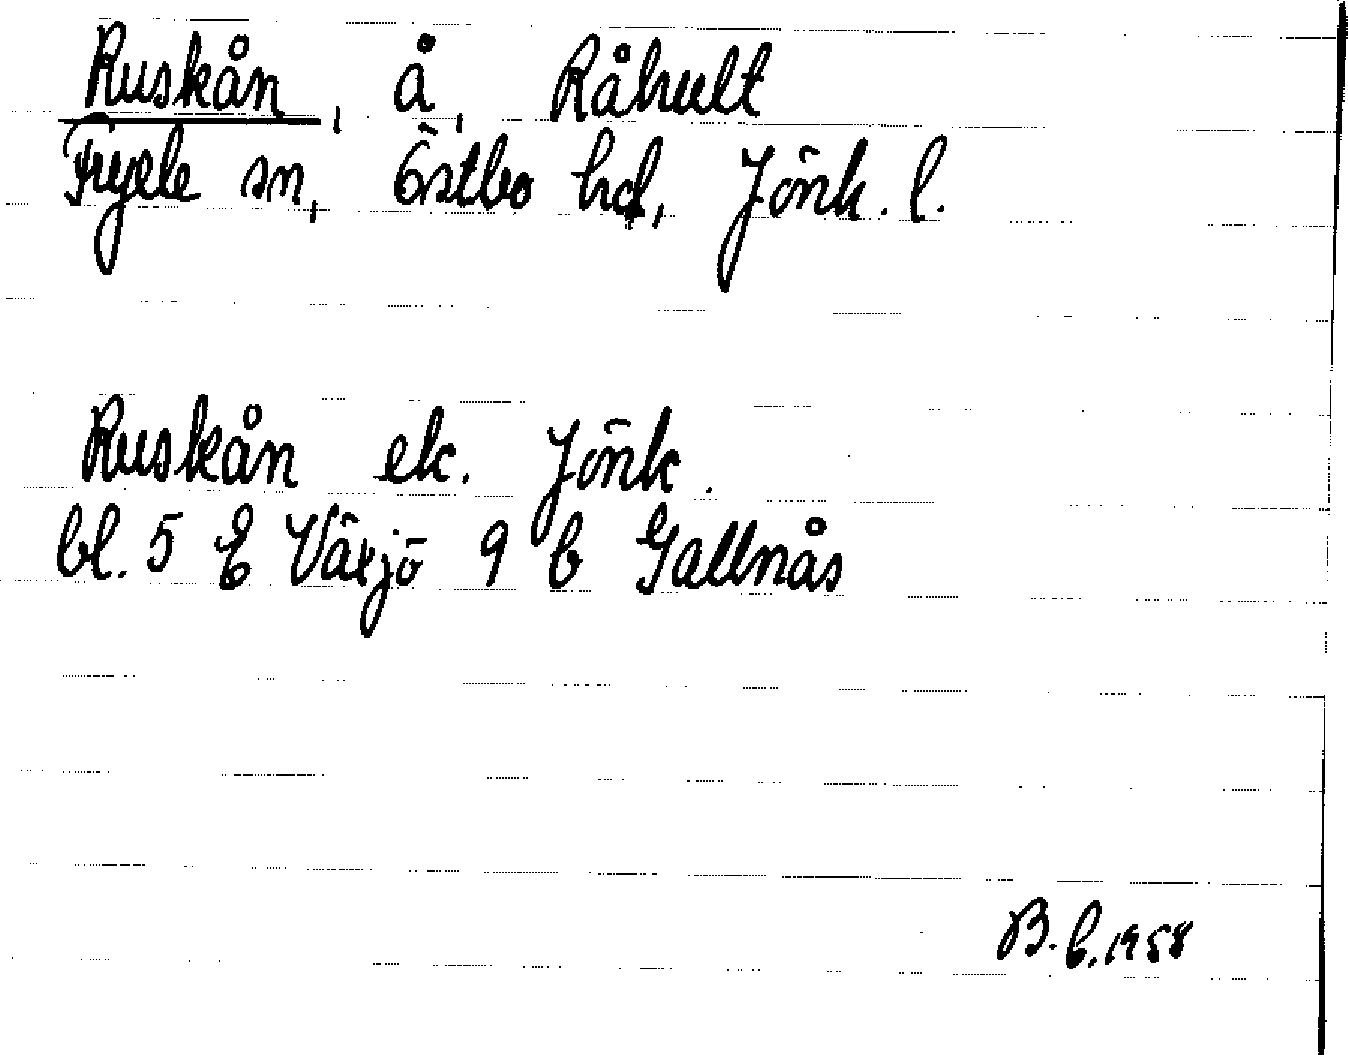 Ruskån, å, Råhult
Fryele sn, Östbo hd, Jönk. l.
Ruskån ek. Jönk.
bl. 5 E Växjö 9 b Gällnås
B. b. 1958